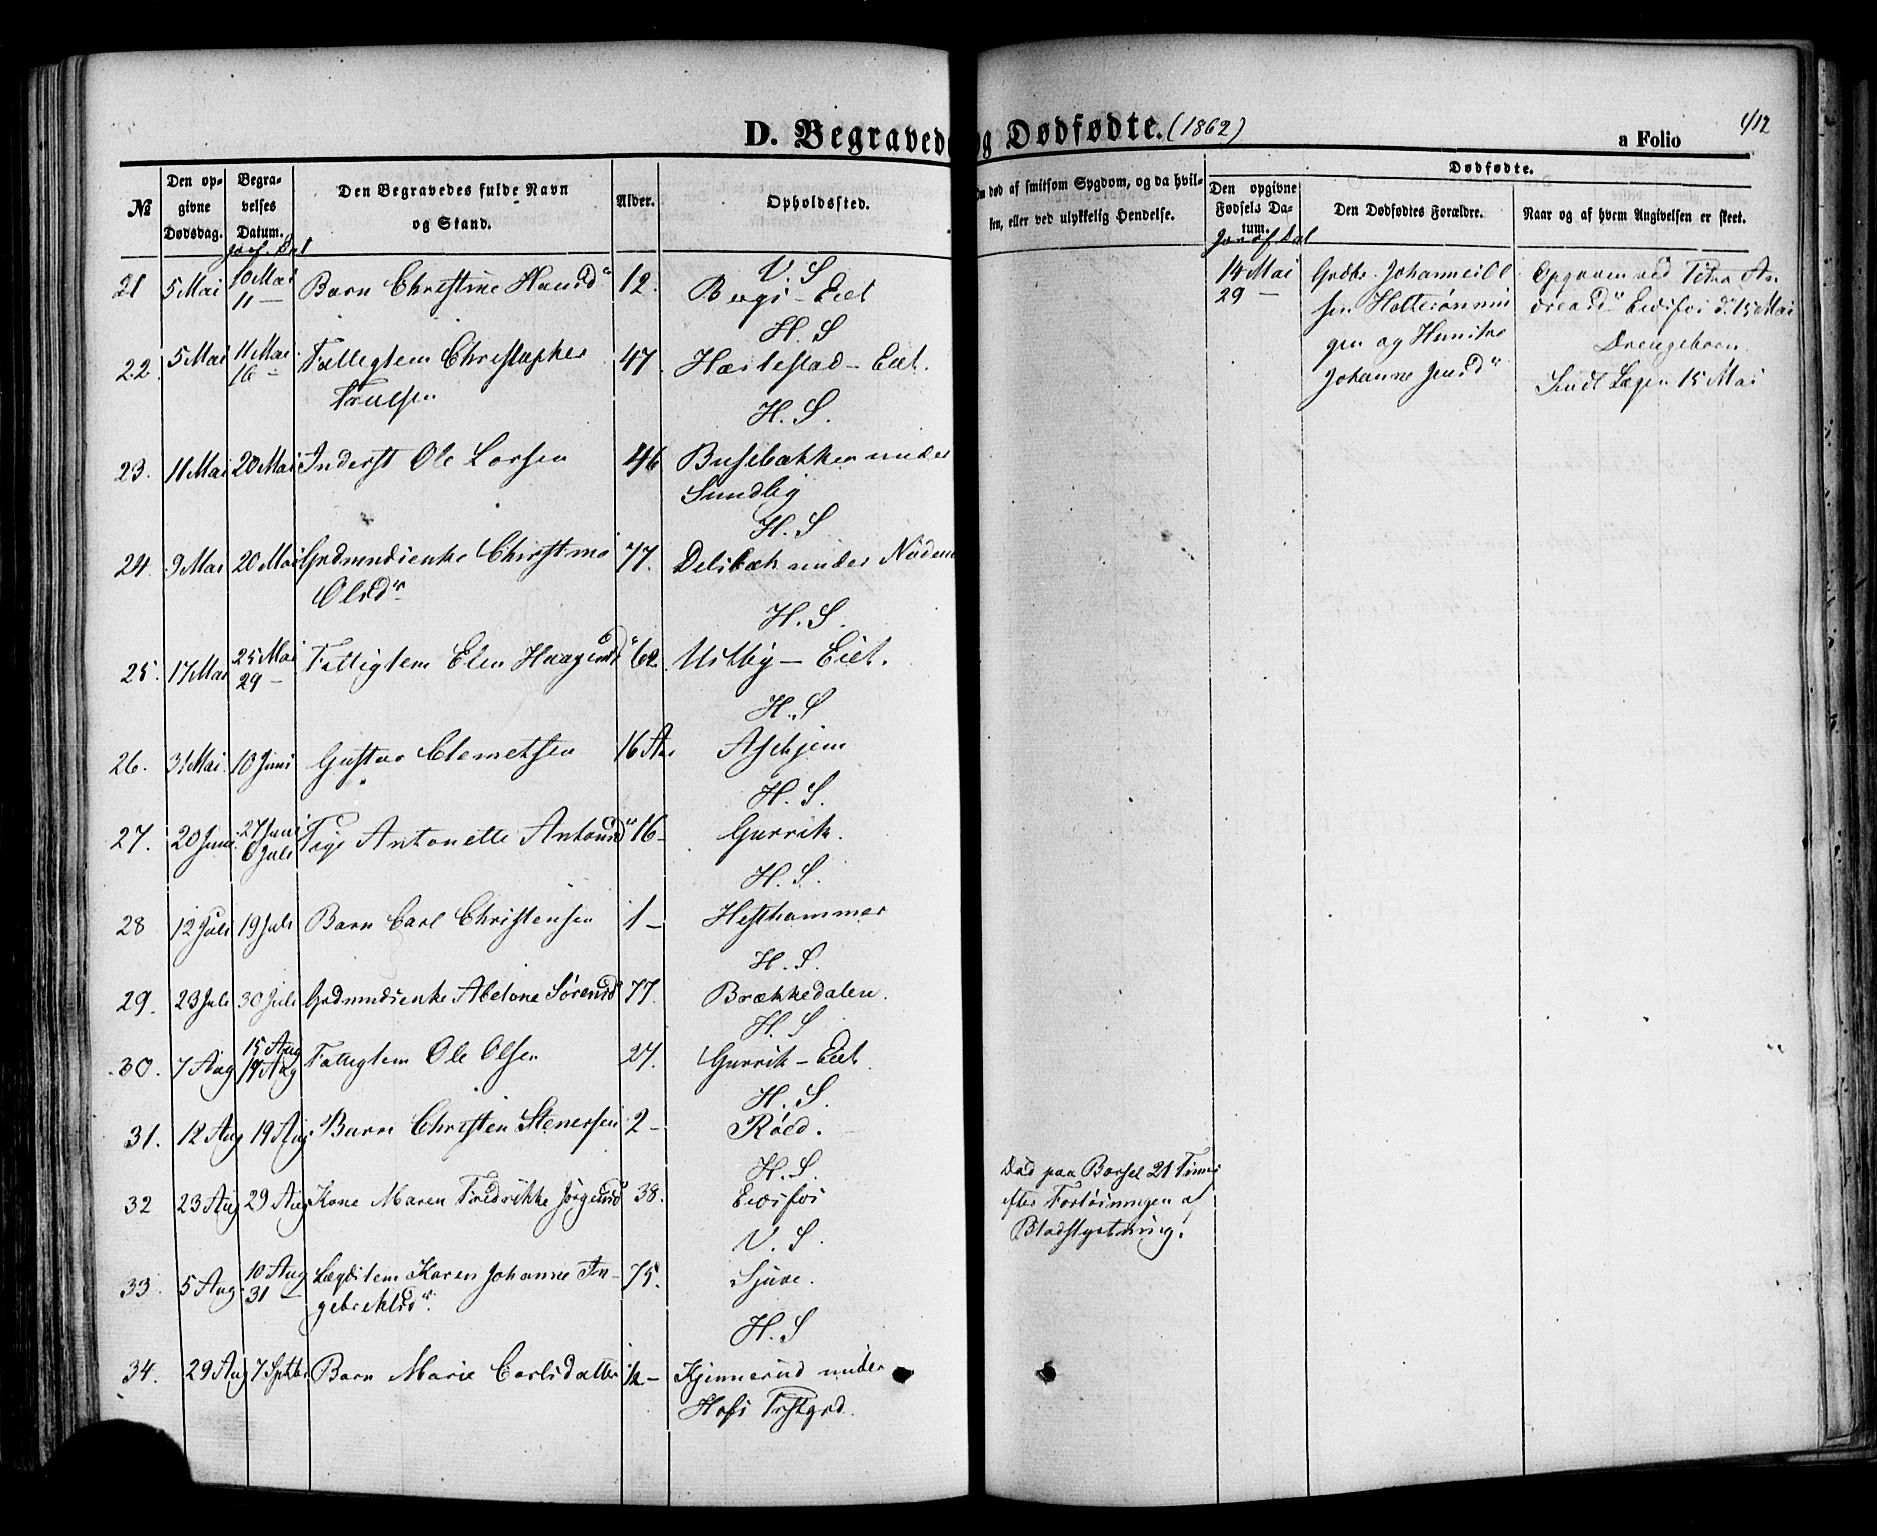 D. Begravede og Dødfødte. (1862)
a Folio 412
№
Den opgivne Dødsdag.
Begravelses Datum.
Den Begravedes fulde Navn og Stand.
Alder.
Opholdssted.
Om død af smitsom Sygdom, og da hvilken, eller ved ulykkelig Hendelse.
Dødfødte.
Den opgivne Fødsels Datum.
Den Dødfødtes Forældre.
Naar og af hvem Angivelsen er skeet.
V. S
21 5 Mai 10 Mai Barn Christine Hansd 12. Bergs-Eiet
11 —
H. S
22. 5 Mai 11 Mai Fattiglem Christopher 47. Hæslestad-Eiet.
16 — Truelsen
H. S.
23. 11 Mai 20 Mai Inderst Ole Larsen 46 Busebakken under
Sundby
H. S
24. 9 Mai 20 Mai Grdmndsenke Christine 77. under
Olsdr
H. S.
25. 17 Mai 25 Mai Fattiglem Elen 62. Ustby — Eiet.
29 —
H. S
26. 31 Mai 10 Juni Gustav Clemetsen 16 Aar Askjem
H. S.
27. 20 Juni 27 Juni Pige Antonette 16 — Gurrik.
6 Juli
H. S.
28 12 Juli 19 Juli Barn Carl Christensen 1 — Hesthammer
H. S.
29. 23 Juli 30 Juli Grdmndsenke Abelone Sørensd 77. Brækkedalen.
H. S
30. 7 Aug 15 Aug Fattiglem Ole Olsen 24. Gurrik-Eiet.
17 Aug
H. S.
31. 12 Aug 19 Aug. Barn Christen Stenersen 2 — Røed.
H. S.
32 23 Aug 29 Aug Kone Maren Fredrikke Jørgensd 38. Eidsfos
Død paa Barsel 21 Timer
efter Forløsningen af
Blodstyrtning.
V. S.
33. 5 Aug 10 Aug Lægdslem Karen Johanne In- 75. Sjuve.
31 — gebrektsdr.
H. S
34. 29 Aug 7 Septbr Barn Marie Carlsdatter ½ — under
Hofs Prstgrd.
14 Mai
29 —
Grdbr. Johannes Ol
sen
gen og Hustru
Johanne Jensdr
Opgaven ved Petra An
dreasdr Eidsfos d. 15 Mai
Drengebarn
Sendt Lægen 15 Mai